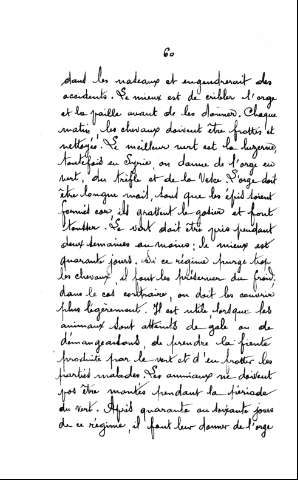 60
dans les naseaux et engendrerait des
accidents. Le mieux est de cribler l'orge
et la paille avant de les donner. Chaque
matin, les chevaux doivent être frottés et
nettoyés. Le meilleur vert est la luzerne,
toutefois en Syrie on donne de l'orge en
vert, du trèfle et de la Vesce. L'orge doit
être longue mais, sans que les épis soient
formés car, ils grattent le gosier et font
tousser. Le vert doit être pris pendant
deux semaines au moins; le mieux est
quarante jours. Si ce régime purge trop
les chevaux, il faut les préserver du froid,
dans le cas contraire, on doit les couvrir
plus légèrement. Il est utile lorsque les
animaux sont atteints de gale ou de
démangeaisons, de prendre la fiente
produite par le vert et d'en frotter les
parties malades. Les animaux ne doivent
pas être montés pendant la période
du vert. Après quarante ou soixante jours
de ce régime, il faut leur donner de l'orge